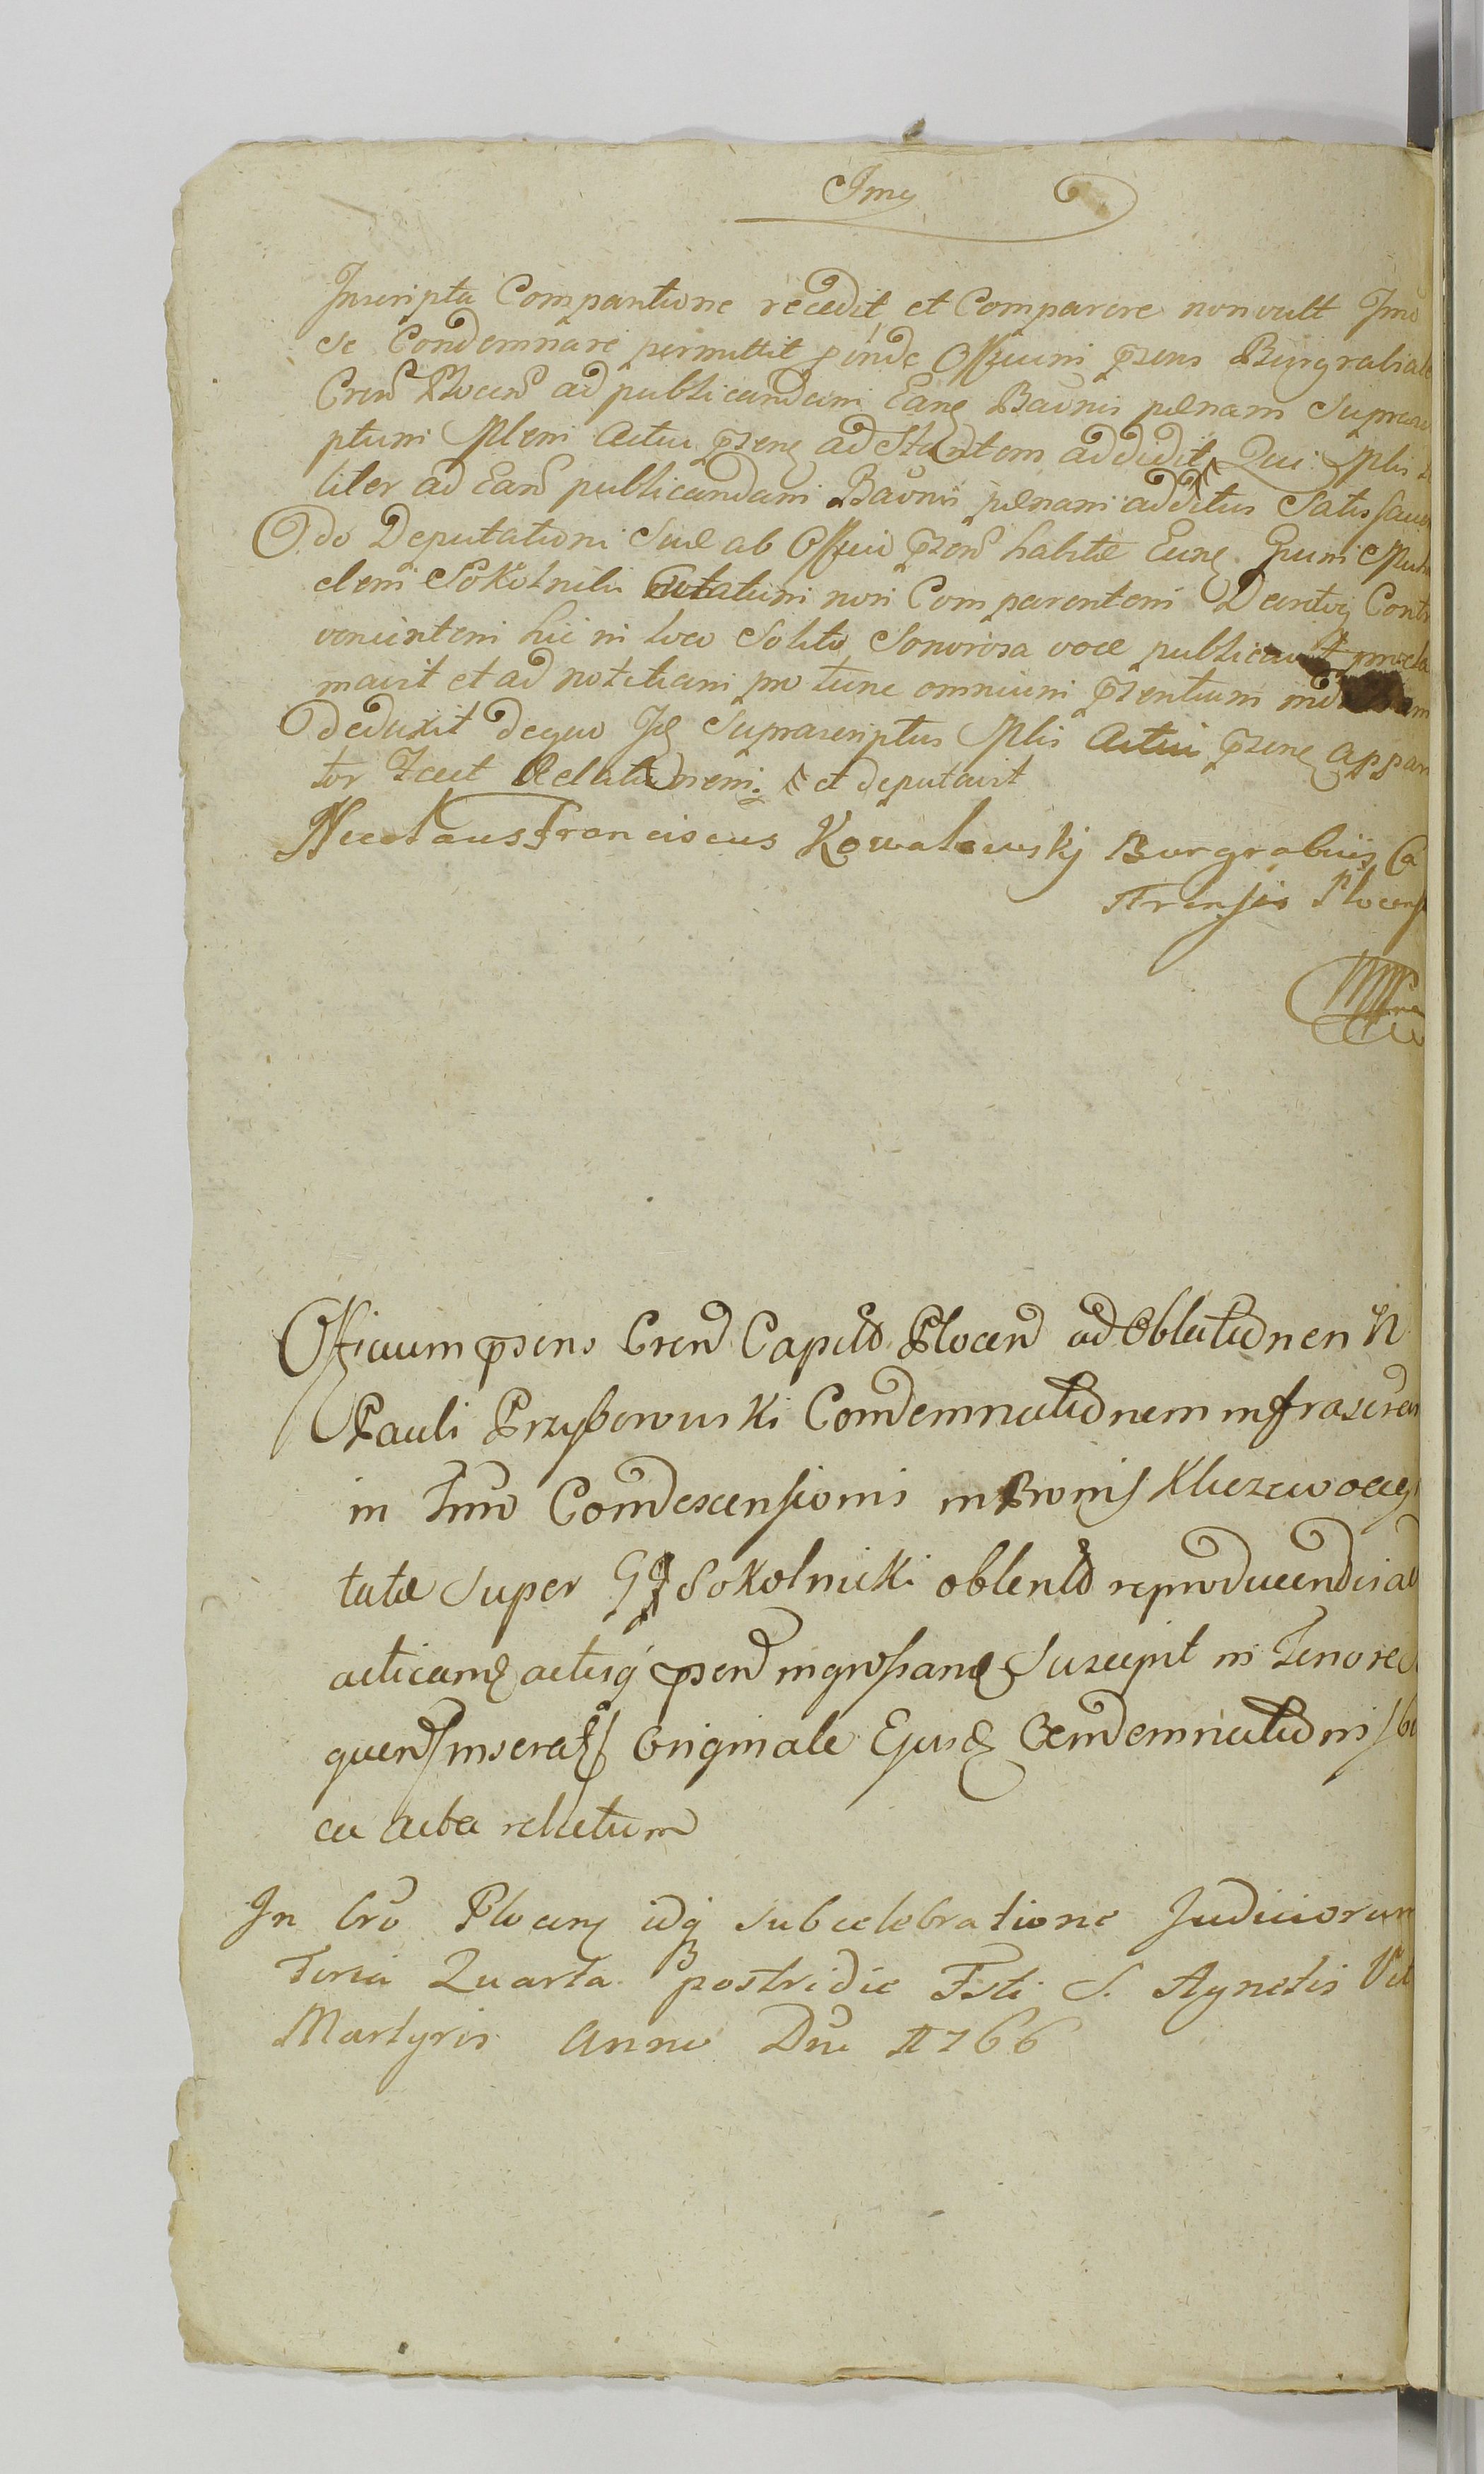 Imę
Inscripta Comparitione recedit et Comparere non vult Imo
se Condemnare permittit proinde Officium prsens Burgrabiale
Cren Plocen ad publicandam Eane Baonis pænam Suprascri
ptum Mlem Actui prsene ad Stantem addidit Qui Mlis
liter ad Ean publicandam Baonis pænam additus Satisfacien
do Deputationi Suæ ab Officio prsen habitæ Eune Gnum
elem Sokolnicki Citatum non Comparentem Deant Contra
venientem hic in loco Solito Sonorosa voce publicavit procla
mavit et ad notitiam pro tunc omnium prsentium
deduxit dequo Je Suprascriptus Mlis Actui prsene Appari
tor Fecit Relationem et deputavit
Nicolaus Franciscus Kowalewskj Burgrabius Ca
strensis Plocens
Officium prsens Cren Capitl Plocen ad Oblationem N
Pauli Przybowuski Condemnationem infrascren
in Tmo Condescensionis in Bonis Kluczewo
tatæ super G Sokolnicki obtent reproducendis ad
acticane actisq prsen ingrossane Suscepit in Tenore Se
quen inserat Originale Ejusd Condemnationis
ca acta relictum
In Cro Plocens idq sub celebratione Judiciorum
Feria Quarta postridie Fsti S. Agnetis
Martyris Anno Dni 1766